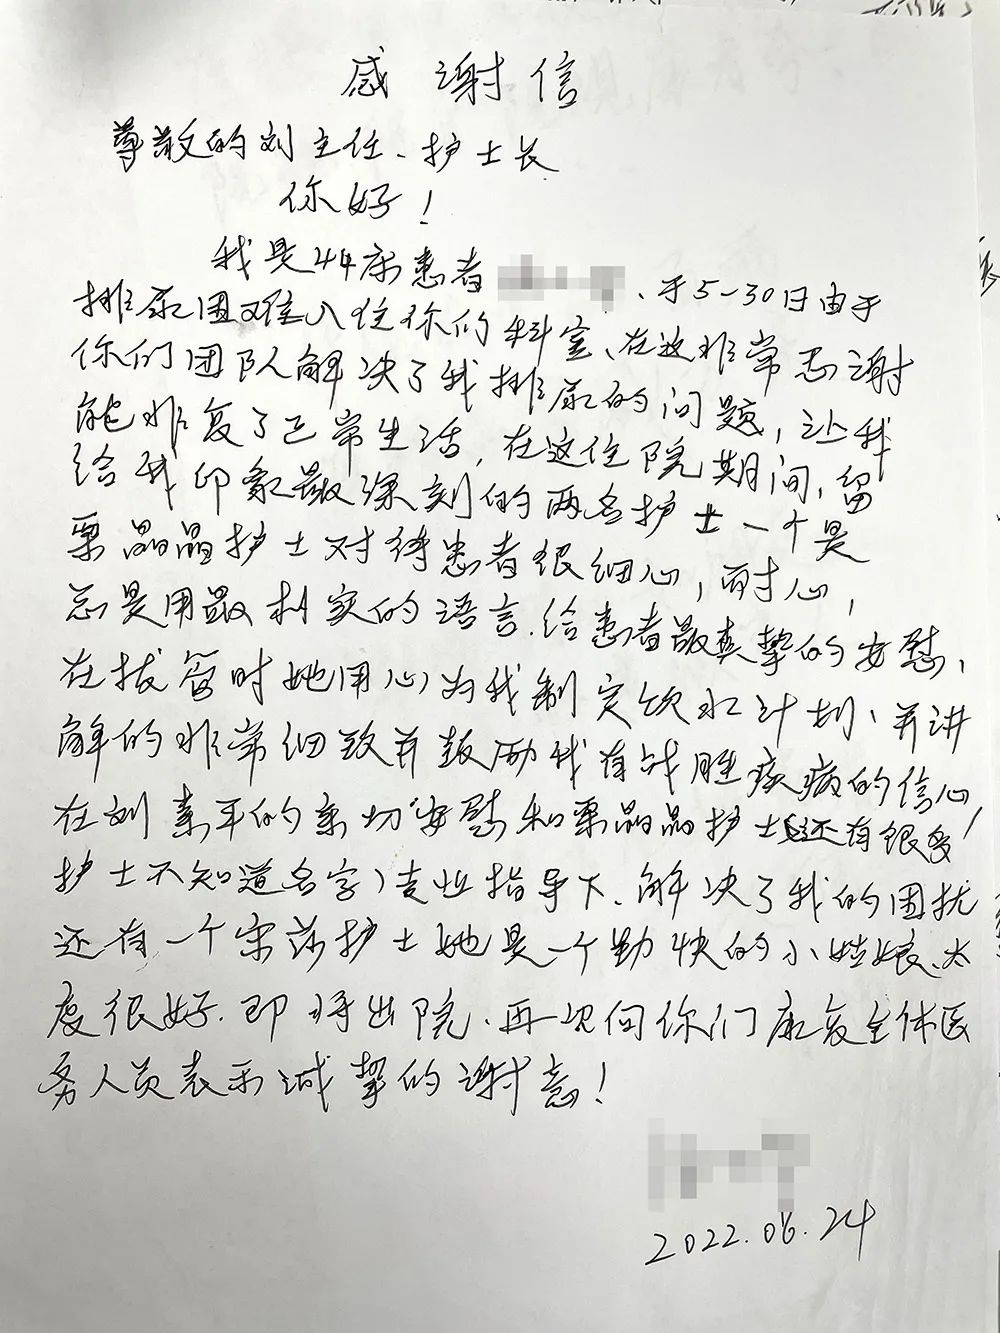 感谢信
尊敬的刘主任、护士长
你好！
我是44床患者、于5-30日由于
排尿困难入住你们科室、在这非常感谢
你们团队解决了我排尿的问题，让我
能恢复了正常生活，在这住院期间，留
给我印象最深刻的两名护士一个是
栗晶晶护士对待患者很细心，耐心，
总是用最朴实的语言.给患者最真挚的安慰、
在拔管时她用心为我制定饮水计划、并讲
解的非常细致并鼓励我有战胜疾病的信心，
在刘素平的亲切安慰和栗晶晶护士(还有很多
护士不知道名字)专业指导下、解决了我的困扰
还有一个宋莎护士她是一个勤快的小姑娘、太
度很好.即将出院、再次向你们康复全体医
务人员表示诚挚的谢意！
2022.06.24